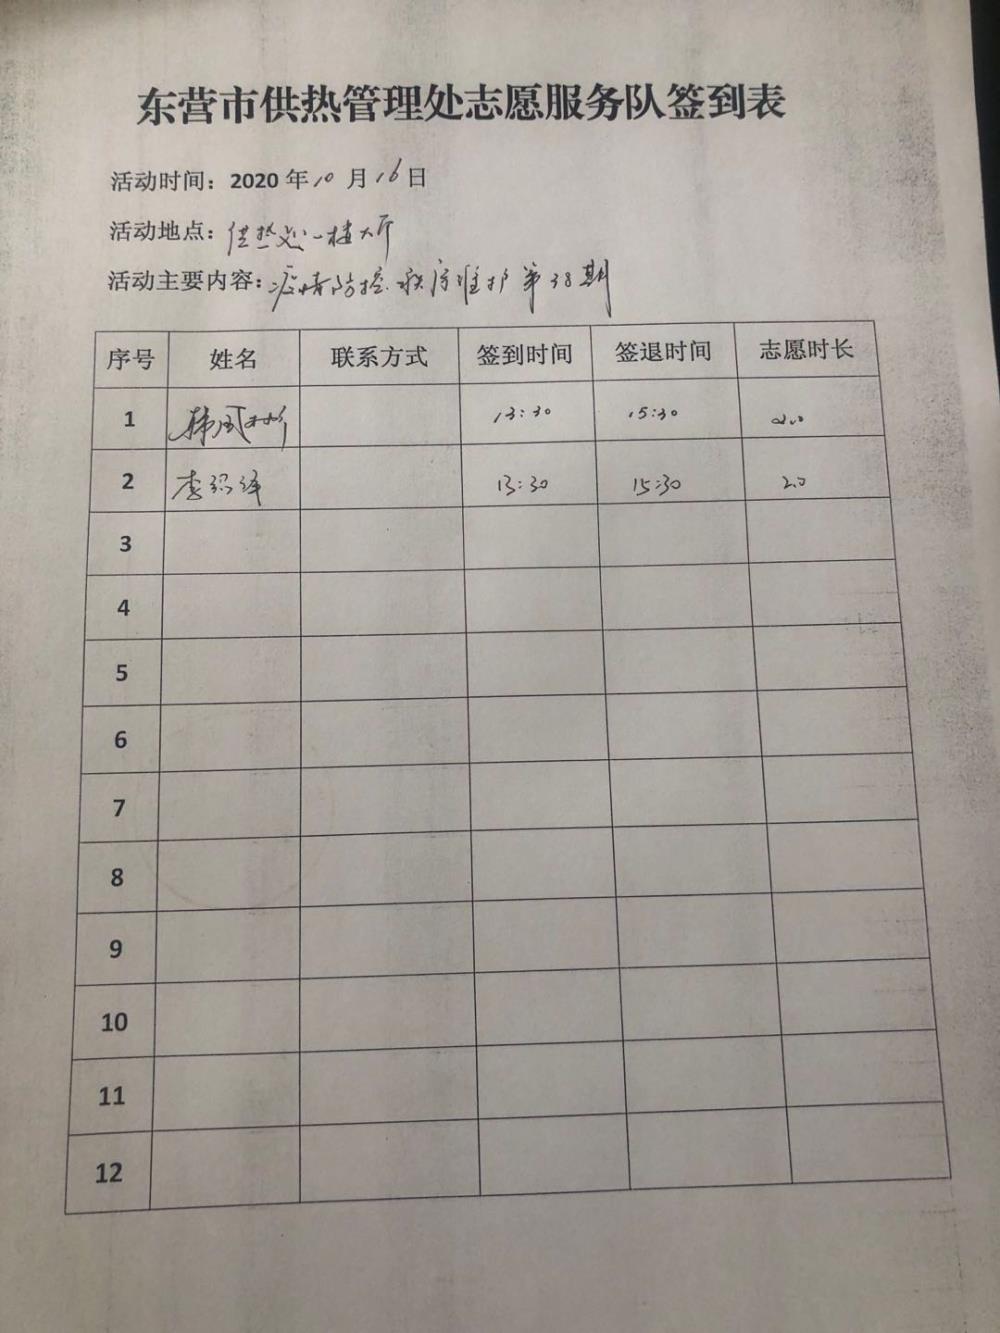 东营市供热管理处志愿服务队签到表
活动时间：2020 年 10 月 16 日
活动地点：供热处一楼大厅
活动主要内容：疫情防控、秩序维护第38期
序号 姓名 联系方式 签到时间 签退时间 志愿时长
1 韩凤 13:30 15:30 2.0
2 李绍泽 13:30 15:30 2.0
3
4
5
6
7
8
9
10
11
12